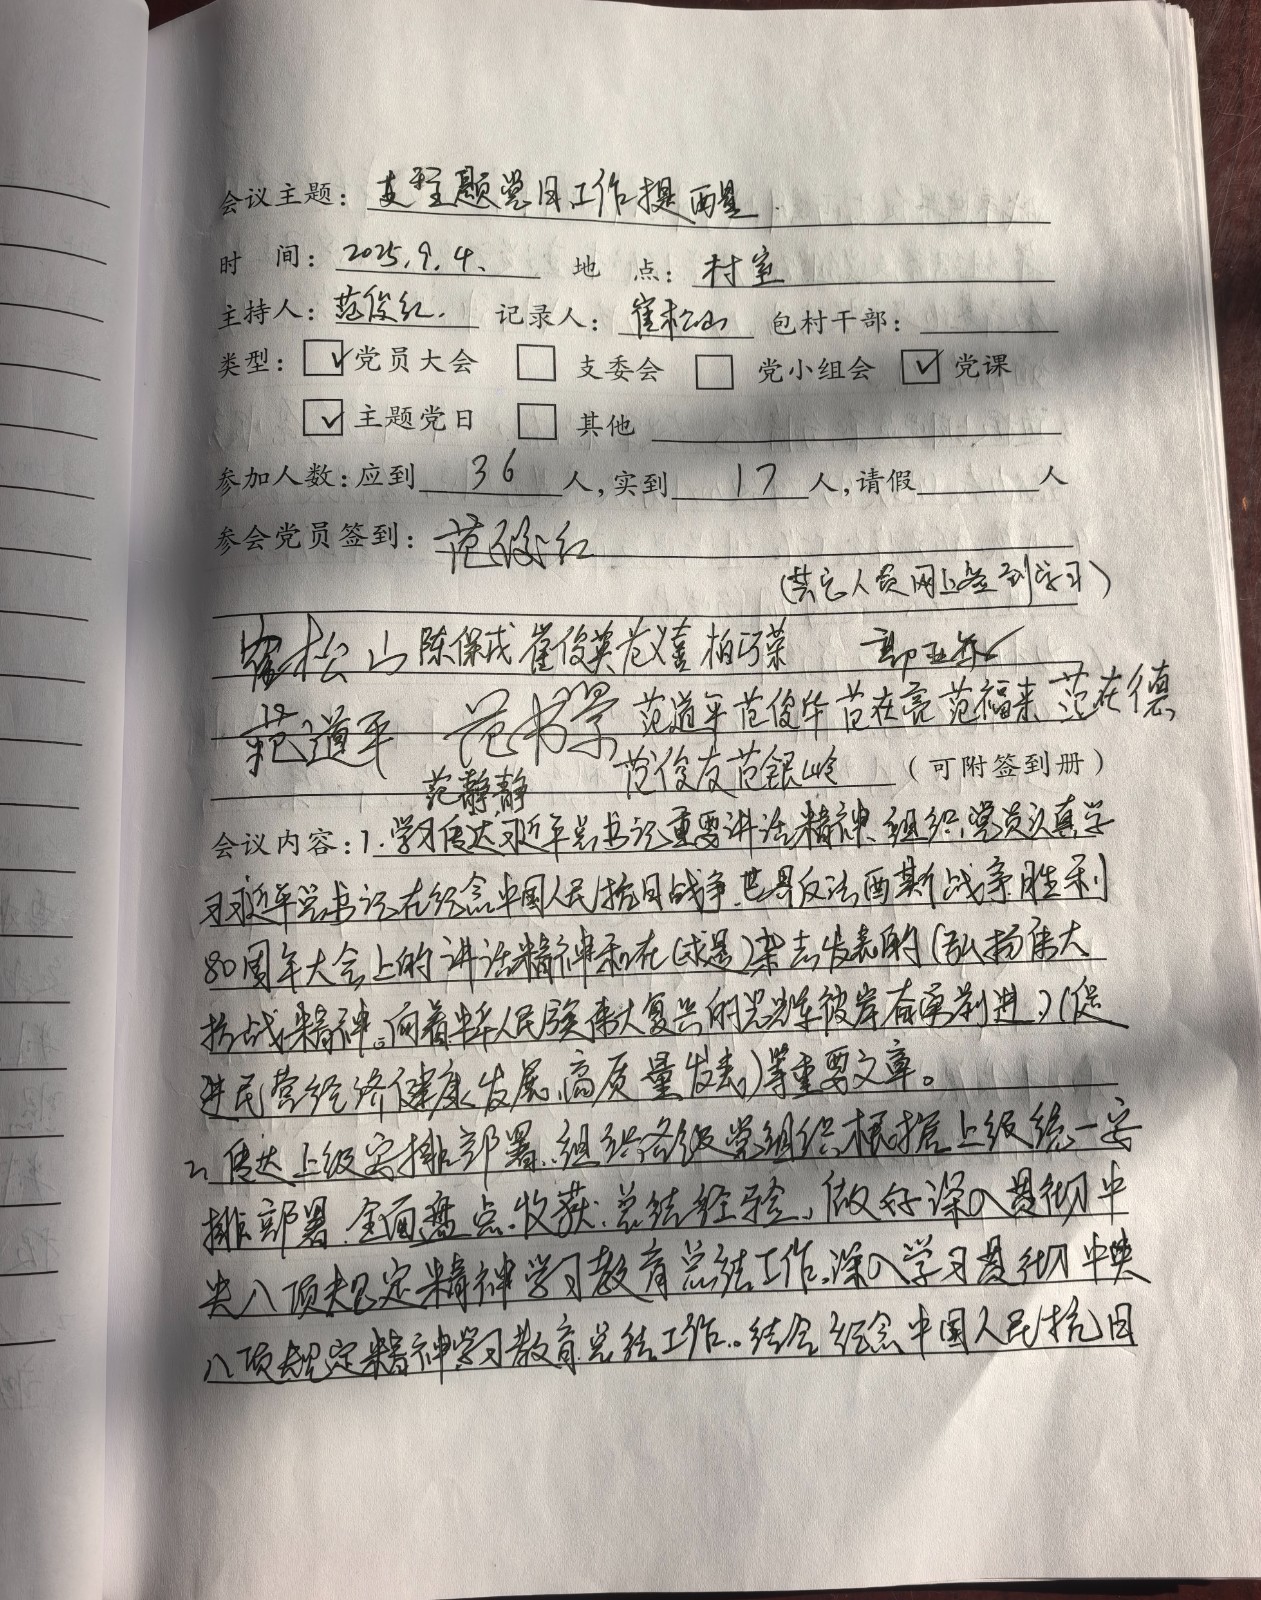 会议主题：支部主题党日工作提醒.
时 间：2025.9.4. 地 点：村室
主持人：范俊红. 记录人：崔松山 包村干部：
类型：☑党员大会 □支委会 □党小组会 ☑党课
☑主题党日 □其他
参加人数：应到36人，实到17人，请假 人
参会党员签到：范俊红
（其它人员网上签到学习）
崔松山 陈保成 崔俊英 范义喜 柏巧荣
范道平 范书景 范道平 范俊华 范在亮 范福来 范在德
范静静 范俊友 范银岭 （可附签到册）
会议内容：1.学习传达习近平总书记重要讲话精神、组织党员认真学
习习近平总书记在纪念中国人民抗日战争、世界反法西斯战争胜利
80周年大会上的讲话精神和在（求是）杂志发表的（弘扬伟大
抗战精神。向着中华人民族伟大复兴的光辉彼岸奋勇前进）（促
进民营经济健康发展、高质量发表）等重要文章。
2、传达上级安排部署、组织各级党组织根据上级统一安
排部署.全面盘点.收获.总结经验、做好深入贯彻中
央八项规定精神学习教育总结工作、深入学习贯彻中央
八项规定精神学习教育总结工作。结合纪念中国人民抗日